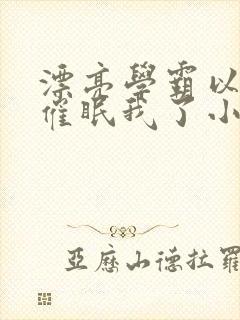 漂亮學霸以
催眠我了小
亞歷山德拉羅